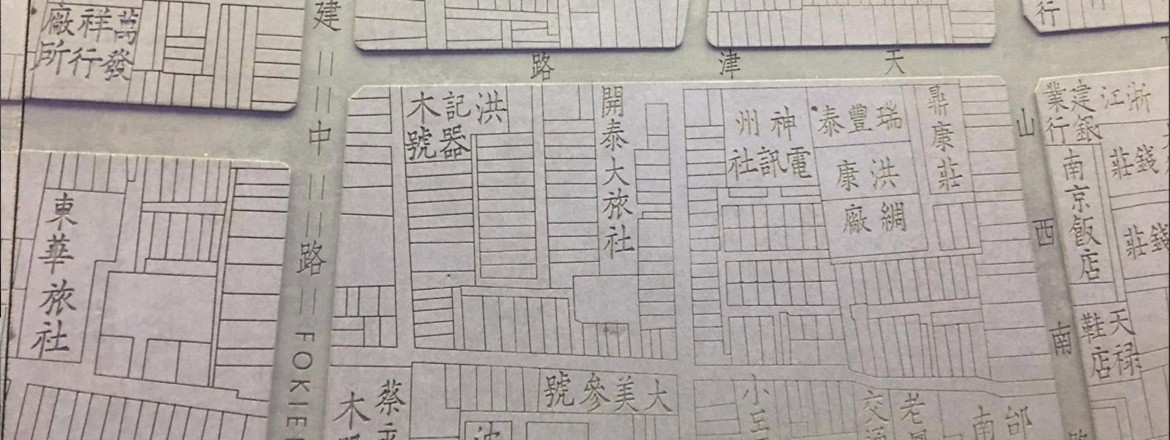 萬祥廠
發行所
建
中
路
FOKIE
天津路
山
西
南
路
東華旅社
洪記木
器號
開泰大旅社
神州
電訊社
瑞豐泰
洪康
綢廠
鼎康莊
浙江建業
銀行
錢莊
錢莊
南京飯店
天禄
鞋店
大美參號
蔡
木
小
老
交
邰
南
行